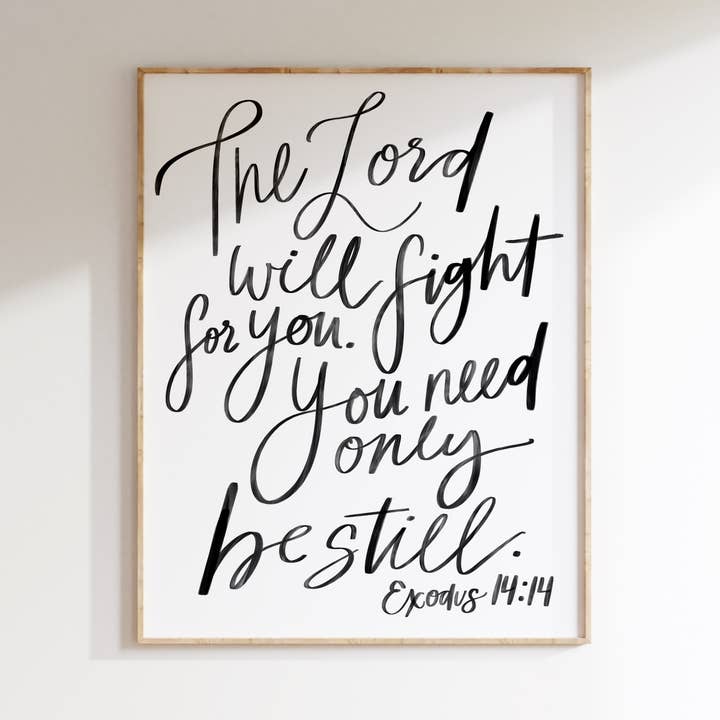 The Lord
will fight
for you.
You need
only
be still.
Exodus 14:14